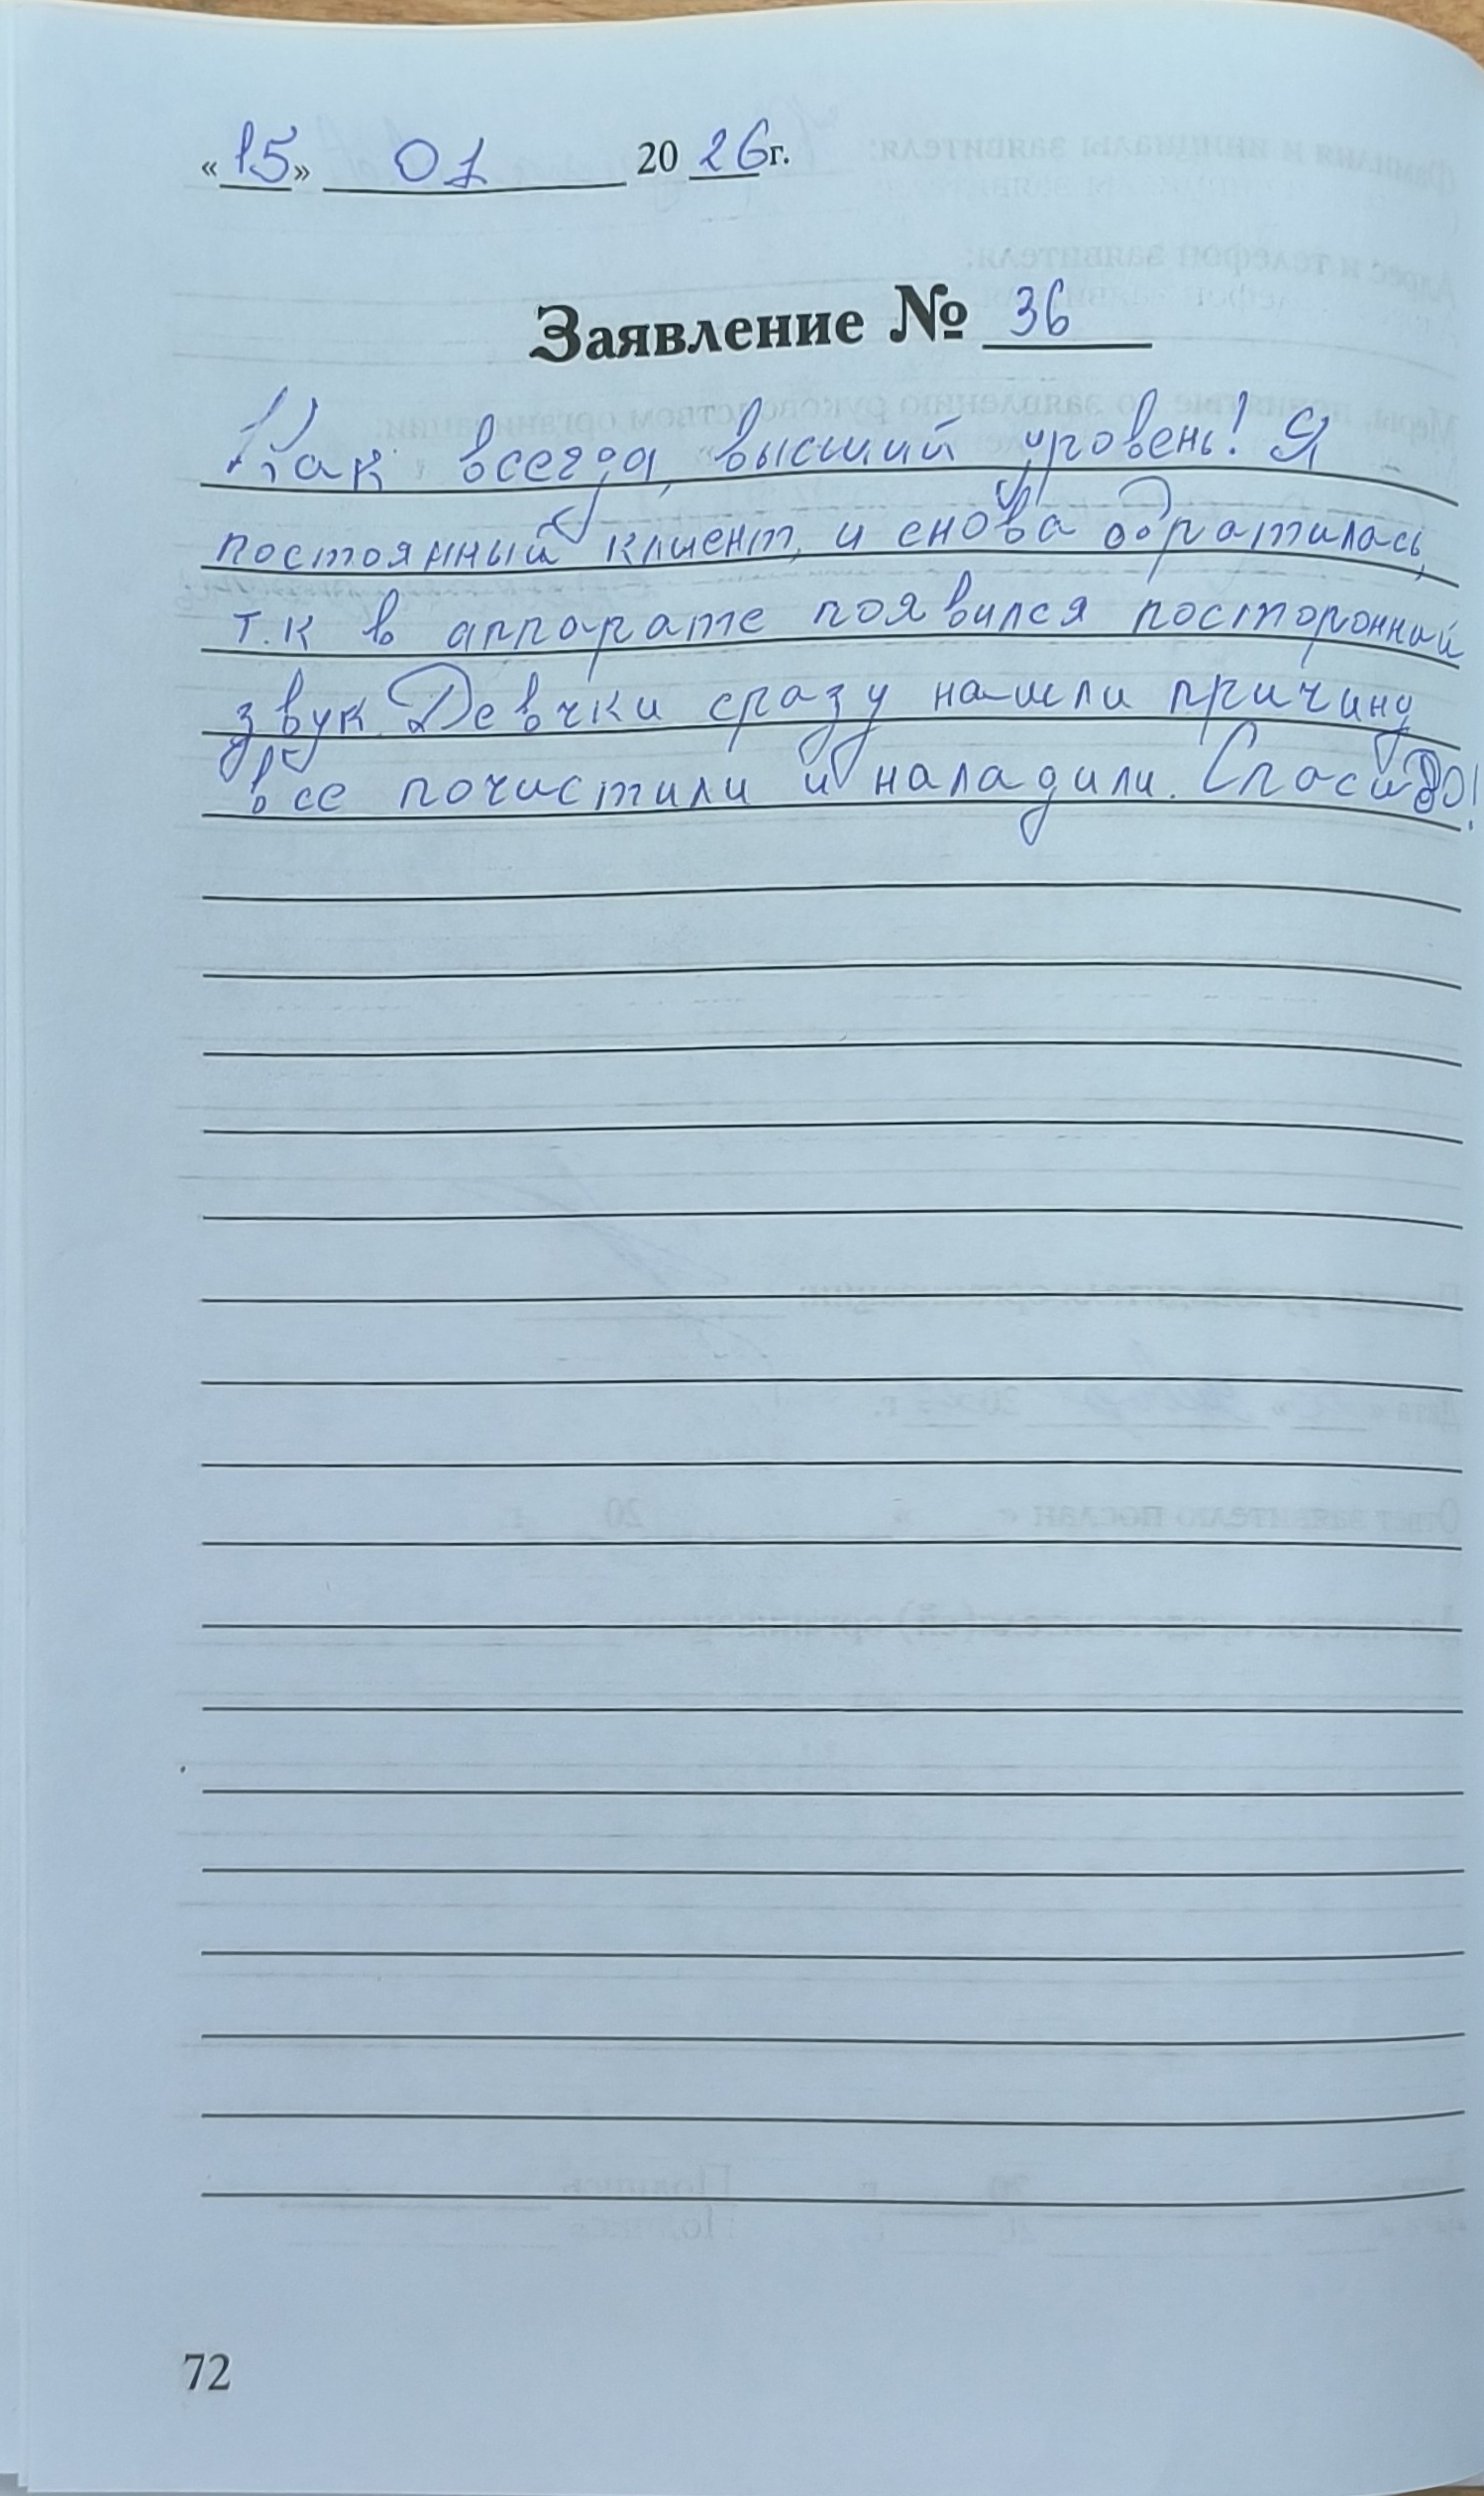 «15» 01 2026г.
Заявление № 36
Как всегда, высший уровень! Я
постоянный клиент, и снова обратилась,
т.к в аппарате появился посторонний
звук. Девчки сразу нашли причину
все почистили и наладили. Спасибо!
72